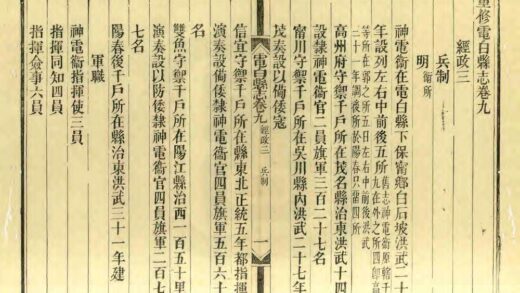 重修電白縣志卷九
經政三
兵制
明 衞所
神電衞在電白縣下保甯鄉白石坡洪武二十
年設列左右中前後五所
高州府守禦千戶所在茂名縣治東洪武十四
設隸神電衞官二員旗軍三百二十七名
甯川守禦千戶所在吳川縣內洪武二十七年
茂奏設以備倭寇
電白縣志卷九 經政三 兵制 一
信宜守禦千戶所在縣東北正統五年都指揮
演奏設備倭隸神電衞官四員旗軍五百六十
名
雙魚守禦千戶所在陽江縣治西一百五十里
演奏設以防倭隸神電衞官四員旗軍二百七
七名
陽春後千戶所在縣治東洪武三十一年建
軍職
神電衞指揮使三員
指揮同知四員
指揮僉事六員